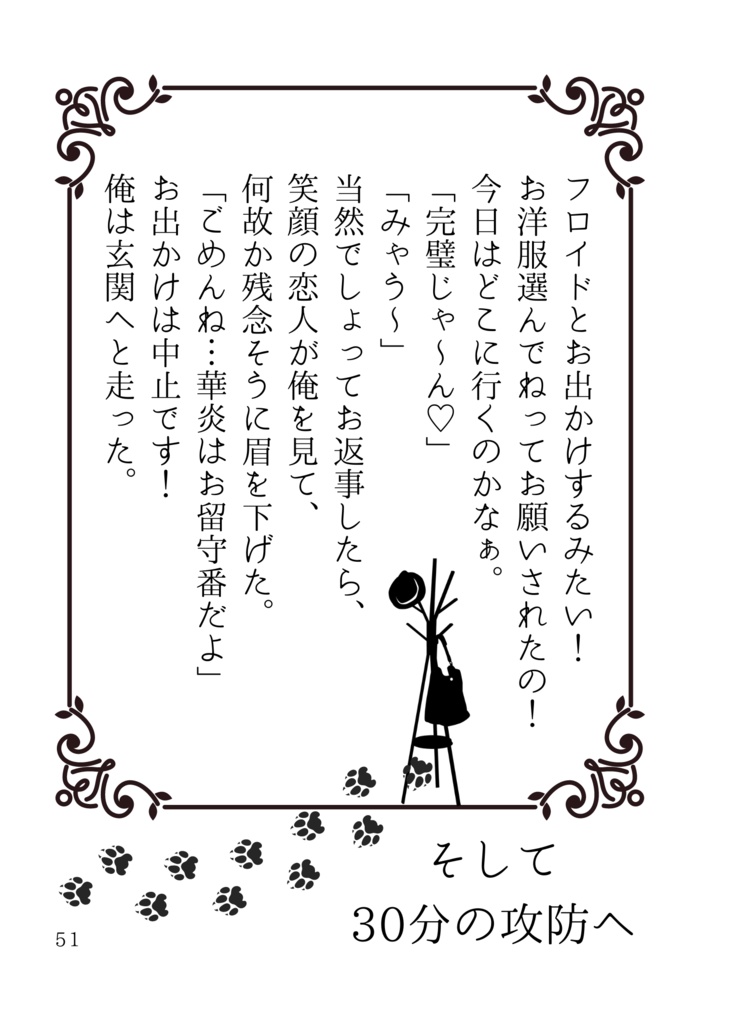 フロイドとお出かけするみたい！
お洋服選んでねってお願いされたの！
今日はどこに行くのかなぁ。
「完璧じゃ～ん♡」
「みゃう～」
当然でしょってお返事したら、
笑顔の恋人が俺を見て、
何故か残念そうに眉を下げた。
「ごめんね…華炎はお留守番だよ」
お出かけは中止です！
俺は玄関へと走った。
そして
30分の攻防へ
51